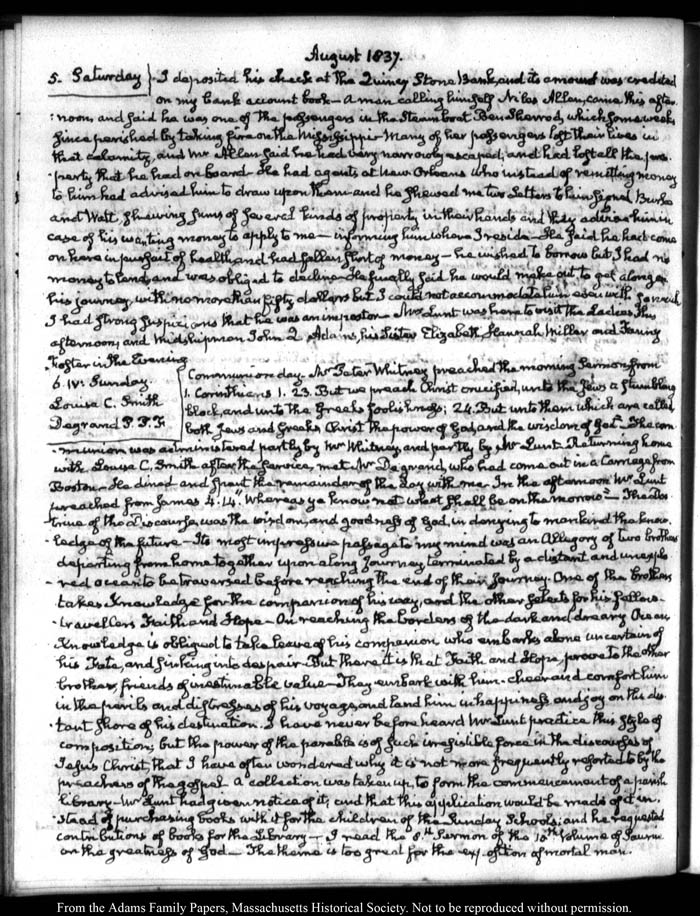 August 1837.
5. Saturday } I deposited his check at the Quincy Stone Bank, and its amount was credited
on my bank account book — A man calling himself Niles Allen, came this after
:noon, and said he was one of the passengers in the Steamboat Ben Sherrod, which some weeks
since perished by taking fire on the Mississippi. Many of her passengers lost their lives in
that calamity, and Mr Allen said he had very narrowly escaped, and had lost all the pro-
:perty that he had on board. He had agents at New Orleans who instead of remitting money
to him had advised him to draw upon them and he shewed me two Letters to him signed Burke
and Watt, shewing sums of several kinds of property in their hands and they advise him in
case of his wanting money to apply to me — informing him where I reside — He said he had come
on here in pursuit of health, and had fallen short of money — he wished to borrow but I had no
money to lend, and was obliged to decline — He finally said he would make out to get along on
his journey, with no more than fifty dollars but I could not accommodate him even with so much
I had strong suspicions that he was an impostor — Mrs Lunt was here to visit the Ladies this
afternoon, and Midshipman John Q Adams, his Sister Elizabeth Hannah Miller and Fanny
Foster in the Evening
6. IV: Sunday
Louisa C. Smith
Degrand P. P. F.
Communion day. Mr Peter Whitney preached the morning Sermon from
1. Corinthians 1. 23. But we preach Christ crucified, unto the Jews a stumbling
block, and unto the Greeks foolishness; 24. But unto them which are called
both Jews and Greeks Christ the power of God, and the wisdom of God — The com
:munion was administered partly by Mr Whitney, and partly by Mr Lunt. Returning home
with Louisa C. Smith after the service, met Mr Degrand, who had come out in a Carriage from
Boston — He dined and spent the remainder of the day with me. In the afternoon Mr Lunt
preached from James 4. 14. Whereas ye know not what shall be on the morrow — The doc
trine of the discourse, was the wisdom, and goodness of God, in denying to mankind the know
:ledge of the future — Its most impressive passage to my mind was an Allegory of two brothers
departing from home together upon a long Journey terminated by a distant and unexplo
:red ocean to be traversed before reaching the end of their Journey. One of the brothers
takes Knowledge for the companion of his way, and the other selects for his fellow
:travellers Faith and Hope — On reaching the borders of the dark and dreary Ocean
Knowledge is obliged to take leave of his companion, who embarks alone uncertain of
his Fate, and sinking into despair. But there it is that Faith and Hope, prove to the other
brother, friends of inestimable value — They embark with him — cheer and comfort him
in the perils and distresses of his voyage, and land him in happiness and joy on the dis
:tant shore of his destination. I have never before heard Mr Lunt practice this style of
composition; but the power of the parable is of such irresistible force in the discourses of
Jesus Christ, that I have often wondered why it is not more frequently resorted to by the
preachers of the gospel. A collection was taken up, to form the commencement of a parish
library — Mr Lunt had given notice of it; and that this application would be made of it in
:stead of purchasing books with it for the children of the Sunday Schools; and he requested
contributions of books for the Library — I read the 8th Sermon of the 10th Volume of Saurin
on the greatness of God — The theme is too great for the exposition of mortal man.
From the Adams Family Papers, Massachusetts Historical Society. Not to be reproduced without permission.